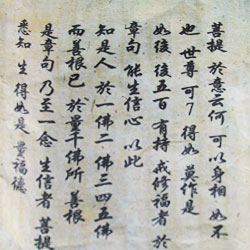 菩提 於意云何 可以身相 如不
也 世尊 可了得如 莫作是
如後 後五百 有持 戒修福者 於
章句 能生信心 以此
知是人 於一佛二佛三四五佛
而善根已 於量千佛所 善根
是章句 乃至一念 生信者 菩提
悉知 生得如是 量福德